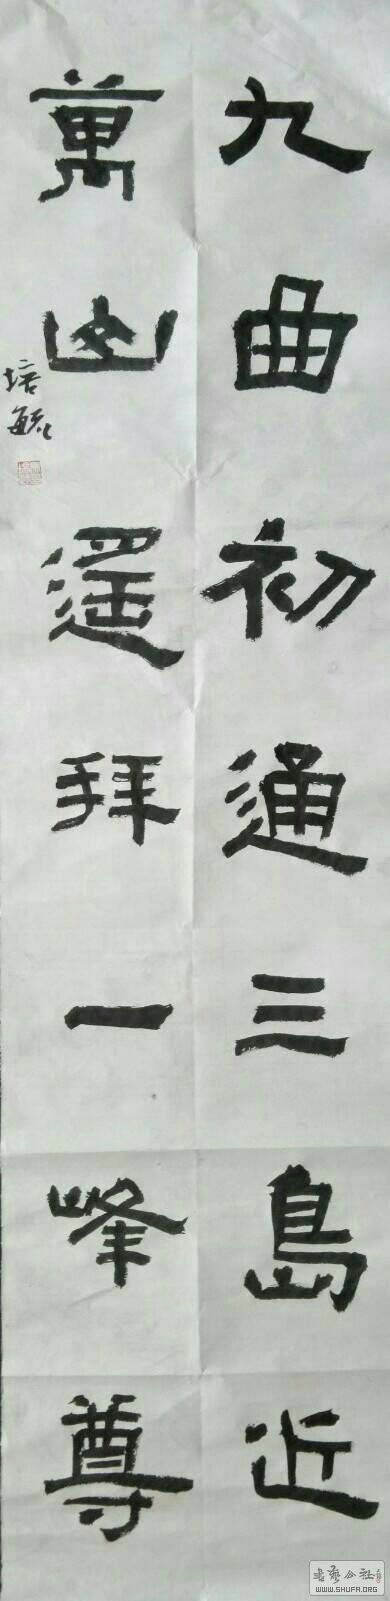 九曲初通三島近
萬山遥拜一峰尊
培毓
WWW.SHUFA.ORG